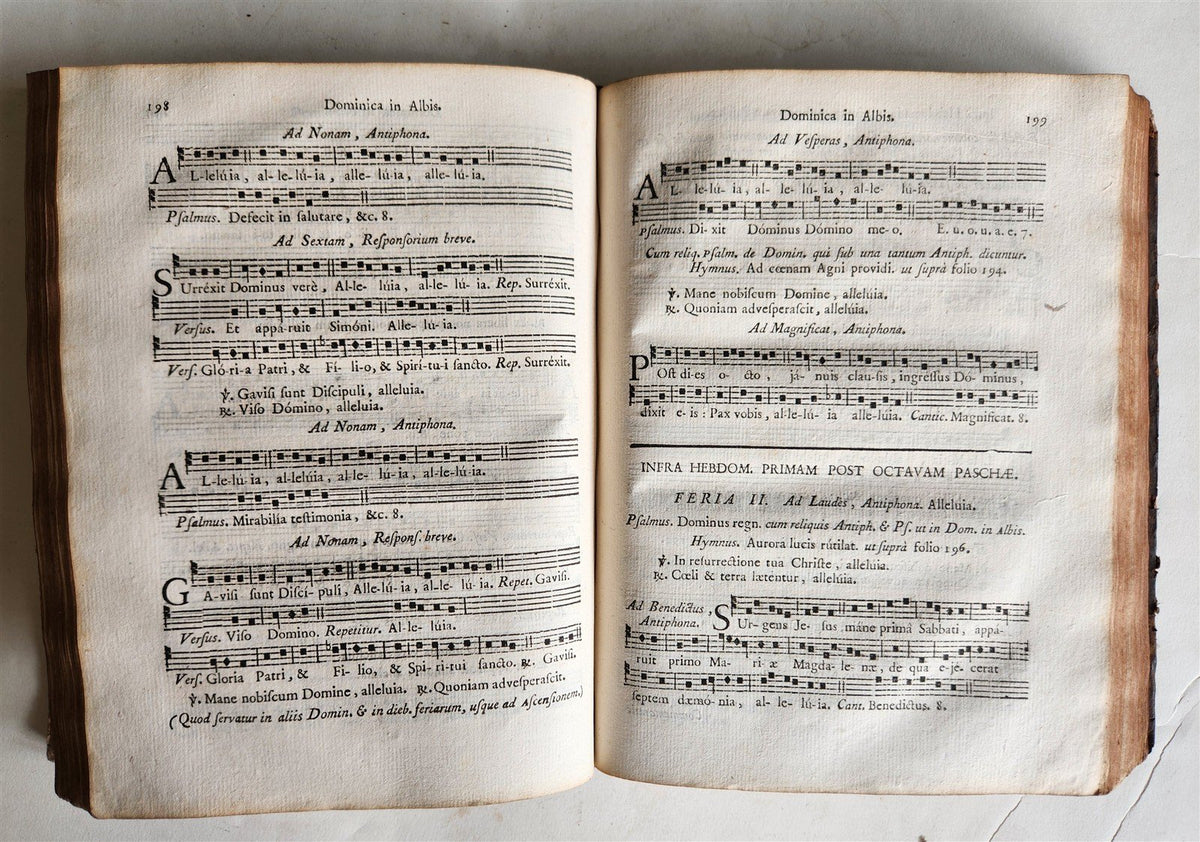 198
Dominica in Albis.
Ad Nonam, Antiphona.
AL-lelúia, al-le-lú-ia, alle-lú-ia, alle-lú-ia.
Psalmus. Defecit in salutare, &c. 8.
Ad Sextam, Responsorium breve.
SUrréxit Dominus verè, Al-le-lúia, al-le-lú-ia. Rep. Surréxit.
Versus. Et appá-ruit Simóni. Alle-lú-ia.
Vers. Gló-ri-a Patri, & Fí-li-o, & Spirí-tu-i sancto. Rep. Surréxit.
℣. Gavisi sunt Discipuli, alleluia.
℟. Viso Dómino, alleluia.
Ad Nonam, Antiphona.
AL-le-lú-ia, al-lelúia, al-le-lú-ia, al-le-lú-ia.
Psalmus. Mirabilia testimonia, &c. 8.
Ad Nonam, Respons. breve.
GA-visi sunt Discí-puli, Alle-lú-ia, al-le-lú-ia. Repet. Gavisi.
Versus. Viso Domino. Repetitur. Al-le-lúia.
Vers. Gloria Patri, & Fí-lio, & Spi-rí-tui sancto. ℟. Gavisi.
℣. Mane nobiscum Domine, alleluia. ℟. Quoniam advesperascit.
(Quod servatur in aliis Domin. & in dieb. feriarum, usque ad Ascensionem.)
Dominica in Albis.
199
Ad Vesperas, Antiphona.
AL-le-lú-ia, al-le-lú-ia, al-le-lú-ia.
Psalmus. Di-xit Dóminus Dómino me-o. E. u. o. u. a. e. 7.
Cum reliq. Psalm. de Domin. qui sub una tantum Antiph. dicuntur.
Hymnus. Ad cœnam Agni providi. ut suprà folio 194.
℣. Mane nobiscum Domine, alleluia.
℟. Quoniam advesperascit, allelúia.
Ad Magnificat, Antiphona.
POst di-es o-cto, já-nuis clau-sis, ingressus Dó-minus,
dixit e-is: Pax vobis, al-le-lú-ia alle-lúia. Cantic. Magnificat. 8.
INFRA HEBDOM. PRIMAM POST OCTAVAM PASCHÆ.
FERIA II. Ad Laudes, Antiphona. Alleluia.
Psalmus. Dominus regn. cum reliquis Antiph. & Ps. ut in Dom. in Albis.
Hymnus. Aurora lucis rútilat. ut suprà folio 196.
℣. In resurrectione tua Christe, alleluia.
℟. Cœli & terra lætentur, allelúia.
Ad Benedictus, Antiphona. SUr-gens Je-sus máne primâ Sabbati, appá-
ruit primo Ma-rí-æ Magda-le-næ, de qua e-je-cerat
septem dæmo-nia, al-le-lú-ia. Cant. Benedictus. 8.